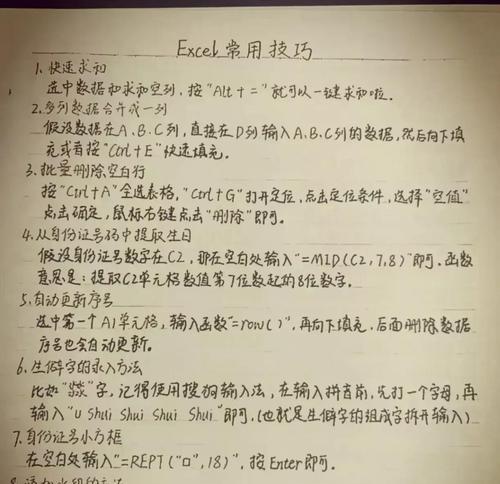 Excel 常用技巧
1. 快速求和
选中数据和求和空列，按"Alt + ="就可以一键求和啦。
2. 多列数据合并成一列
假设数据在A、B、C列，直接在D列输入A、B、C列的数据，然后向下填
充或者按"Ctrl+E"快速填充。
3. 批量删除空白行
按"Ctrl+A"全选表格，"Ctrl+G"打开定位，点击定位条件，选择"空值"
点击确定，鼠标右键点击"删除"即可。
4. 从身份证号码中提取生日
假设身份证号数字在C2，那在空白处输入"=MID(C2,7,8)"即可。函数
意思是：提取C2单元格数值第7位数起的8位数字。
5. 自动更新序号
选中第一个A1单元格，输入函数"=row()"，再向下填充，后面删除数据
序号也会自动更新。
6. 生僻字的录入方法
比如"㵘"字，记得使用搜狗输入法，在输入拼音前，先打一个字母，再
输入"U shui shui shui shui"即可，(也就是生僻字的组成字拆开输入)
7. 身份证号小方框
在空白处输入"=REPT("口",18)"，按Enter即可。